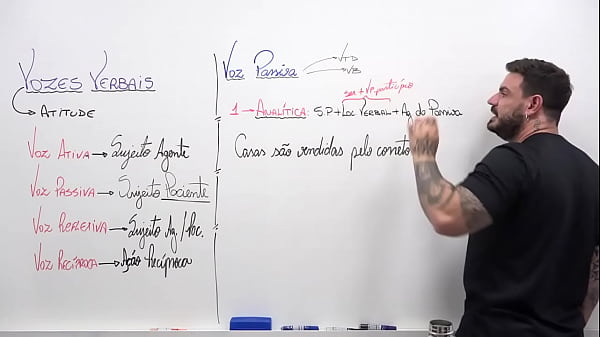 VOZES VERBAIS
ATITUDE
VOZ ATIVA → Sujeito Agente
VOZ PASSIVA → Sujeito Paciente
VOZ REFLEXIVA → Sujeito Ag. / Pac.
VOZ RECÍPROCA → Ação Recíproca
VOZ Passiva
VTD
VB
ser + Vp. particípio
1 → ANALÍTICA: S.P + Loc VERBAL + Ag. da Passiva
Casas são vendidas pelo correto